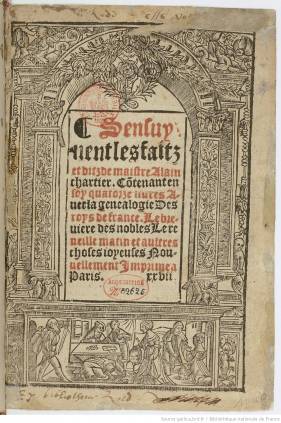 Sensuy
uent les faitz
et ditz de maistre Alain
chartier. Cõtenant en
soy quatorze liures A
uec la genealogie Des
roys de france. Le bre
uiere des nobles Le re
ueille matin et aultres
choses ioyeuses Nou
uellement Imprime a
Paris. xxvii
Source gallica.bnf.fr / Bibliothèque nationale de France